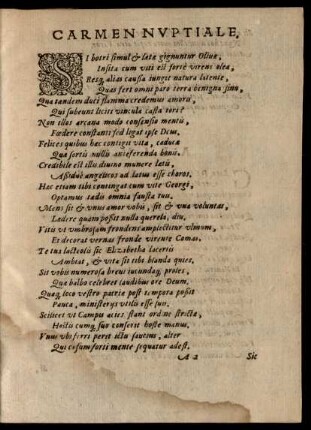 CARMEN NVPTIALE.
SI botri simul & latæ gignuntur Oliuæ,
Insita cum viti est fortè virens olea,
Resq; alias causa iungit natura latente,
Quas fert omniparo terra benigna sinu,
Qua tandem duci flamma credemus amoris,
Qui subeunt liciti vincula casta tori?
Non illos arcana modo consensio mentis,
Fœdere constanti sed legat ipse Deus,
Felices quibus hæc contigit vita, caducæ
Qua sortis nullis anteferenda bonis.
Credibile est illis diuino munere lætis
Assiduè angelicos ad latus esse choros.
Hac etiam tibi contingat cum vite Georgi,
Optamus tædis omnia fausta tuis.
Mens sit & vnus amor vobis, sit & vna voluntas,
Lædere quam possit nulla querela, diu,
Vitis vt vmbrosam frondens amplectitur vlmum,
Et decorat vernas fronde virente comas,
Te tua lacteolis sic Elisabetha lacertis
Ambeat, & vita sit tibi blanda quies,
Sit vobis numerosa breui iucundaq; proles,
Quæ balbo celebret laudibus ore Deum,
Quæq; loco vestro patriæ post tempora possit
Pauca, ministerijs vtilis esse suis,
Scilicet vt Campo acies stant ordine stricta,
Hostis cumq; suo conserit hoste manus,
Vnus vbi ferri perit ictu sautius, alter
Qui sforti mente sequatur adest,
A 2 Sic